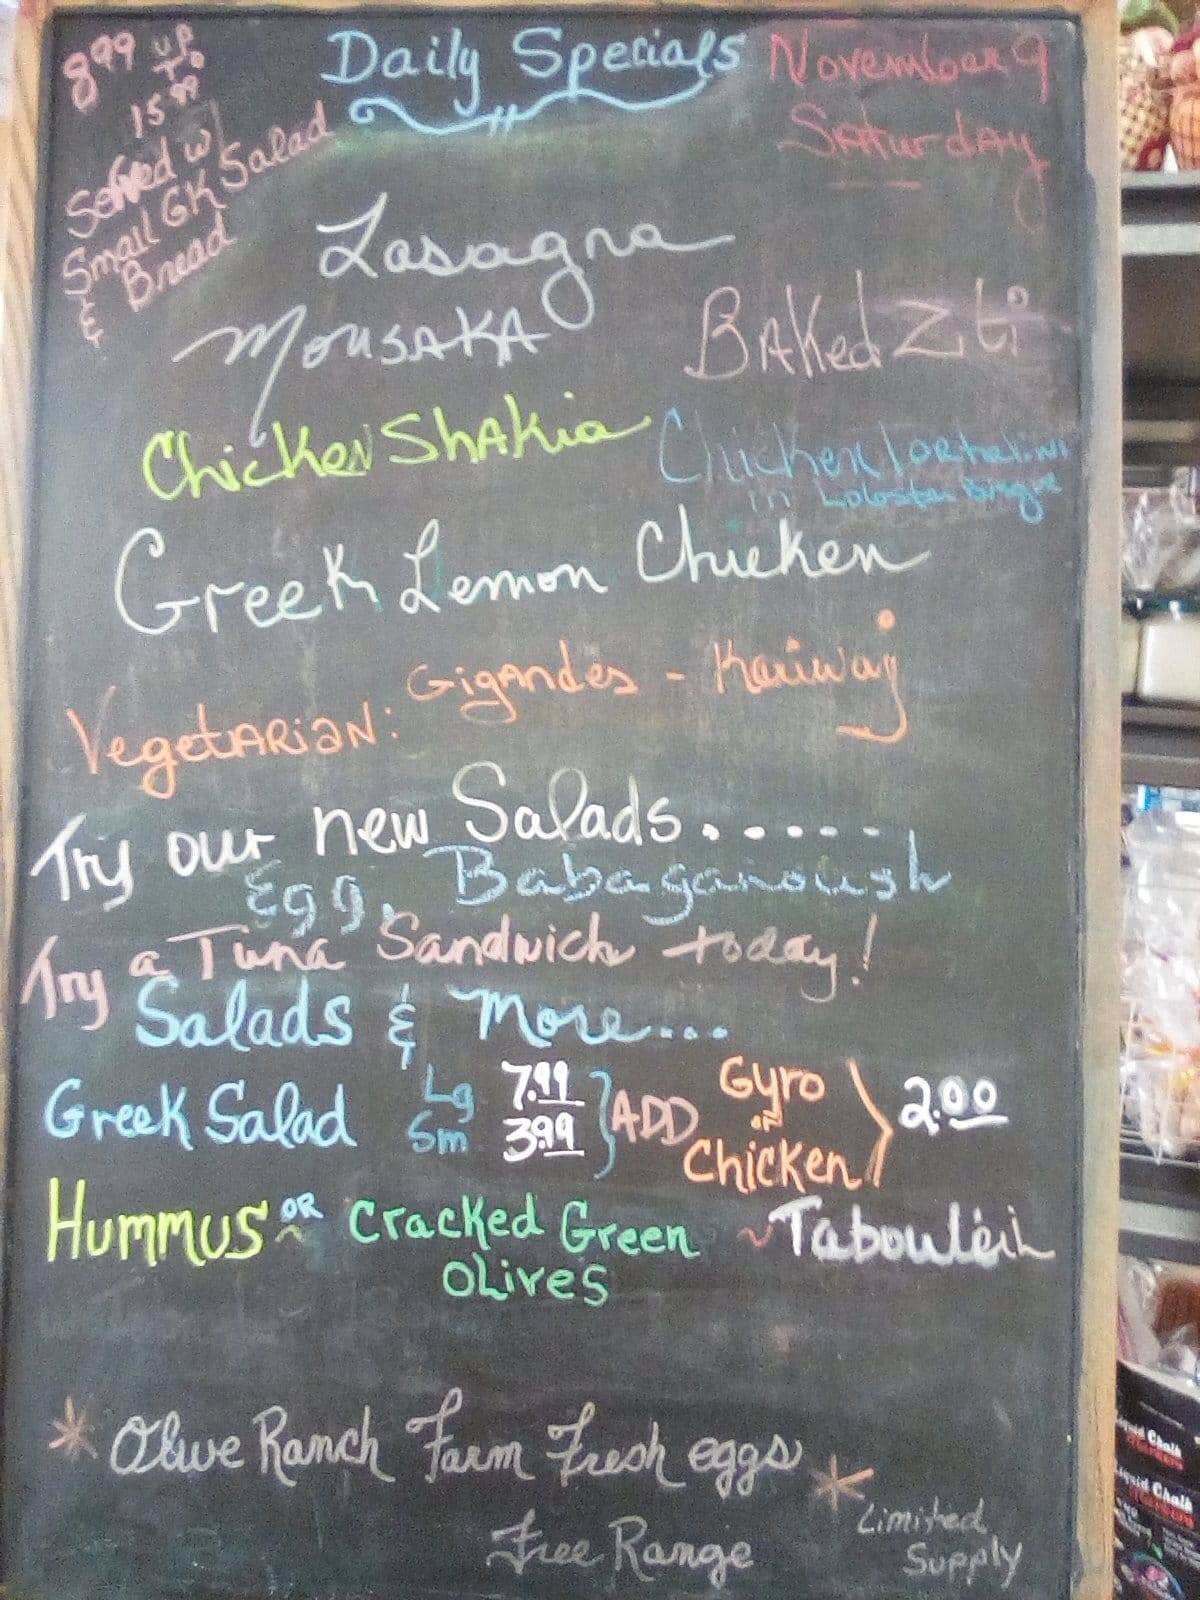 8.99 up
To
15.99
Served w
Small GK Salad
& Bread
Daily Specials
November 9
Saturday
Lasagna
Mousaka
Baked Ziti
Chicken Shakia
Chicken Tortelini
in Lobster Bisque
Greek Lemon Chicken
Vegetarian: Gigandes - Kariway
Try our new Salads......
Egg, Babaganoush
Try a Tuna Sandwich today!
Salads & More...
Greek Salad Lg 7.99 ADD Gyro or Chicken 2.00
Sm 3.99
Hummus or Cracked Green Olives ~ Tabouleh
* Olive Ranch Farm Fresh eggs *
Free Range
Limited
Supply
Liquid Chalk
Markers
Liquid Chalk
Markers